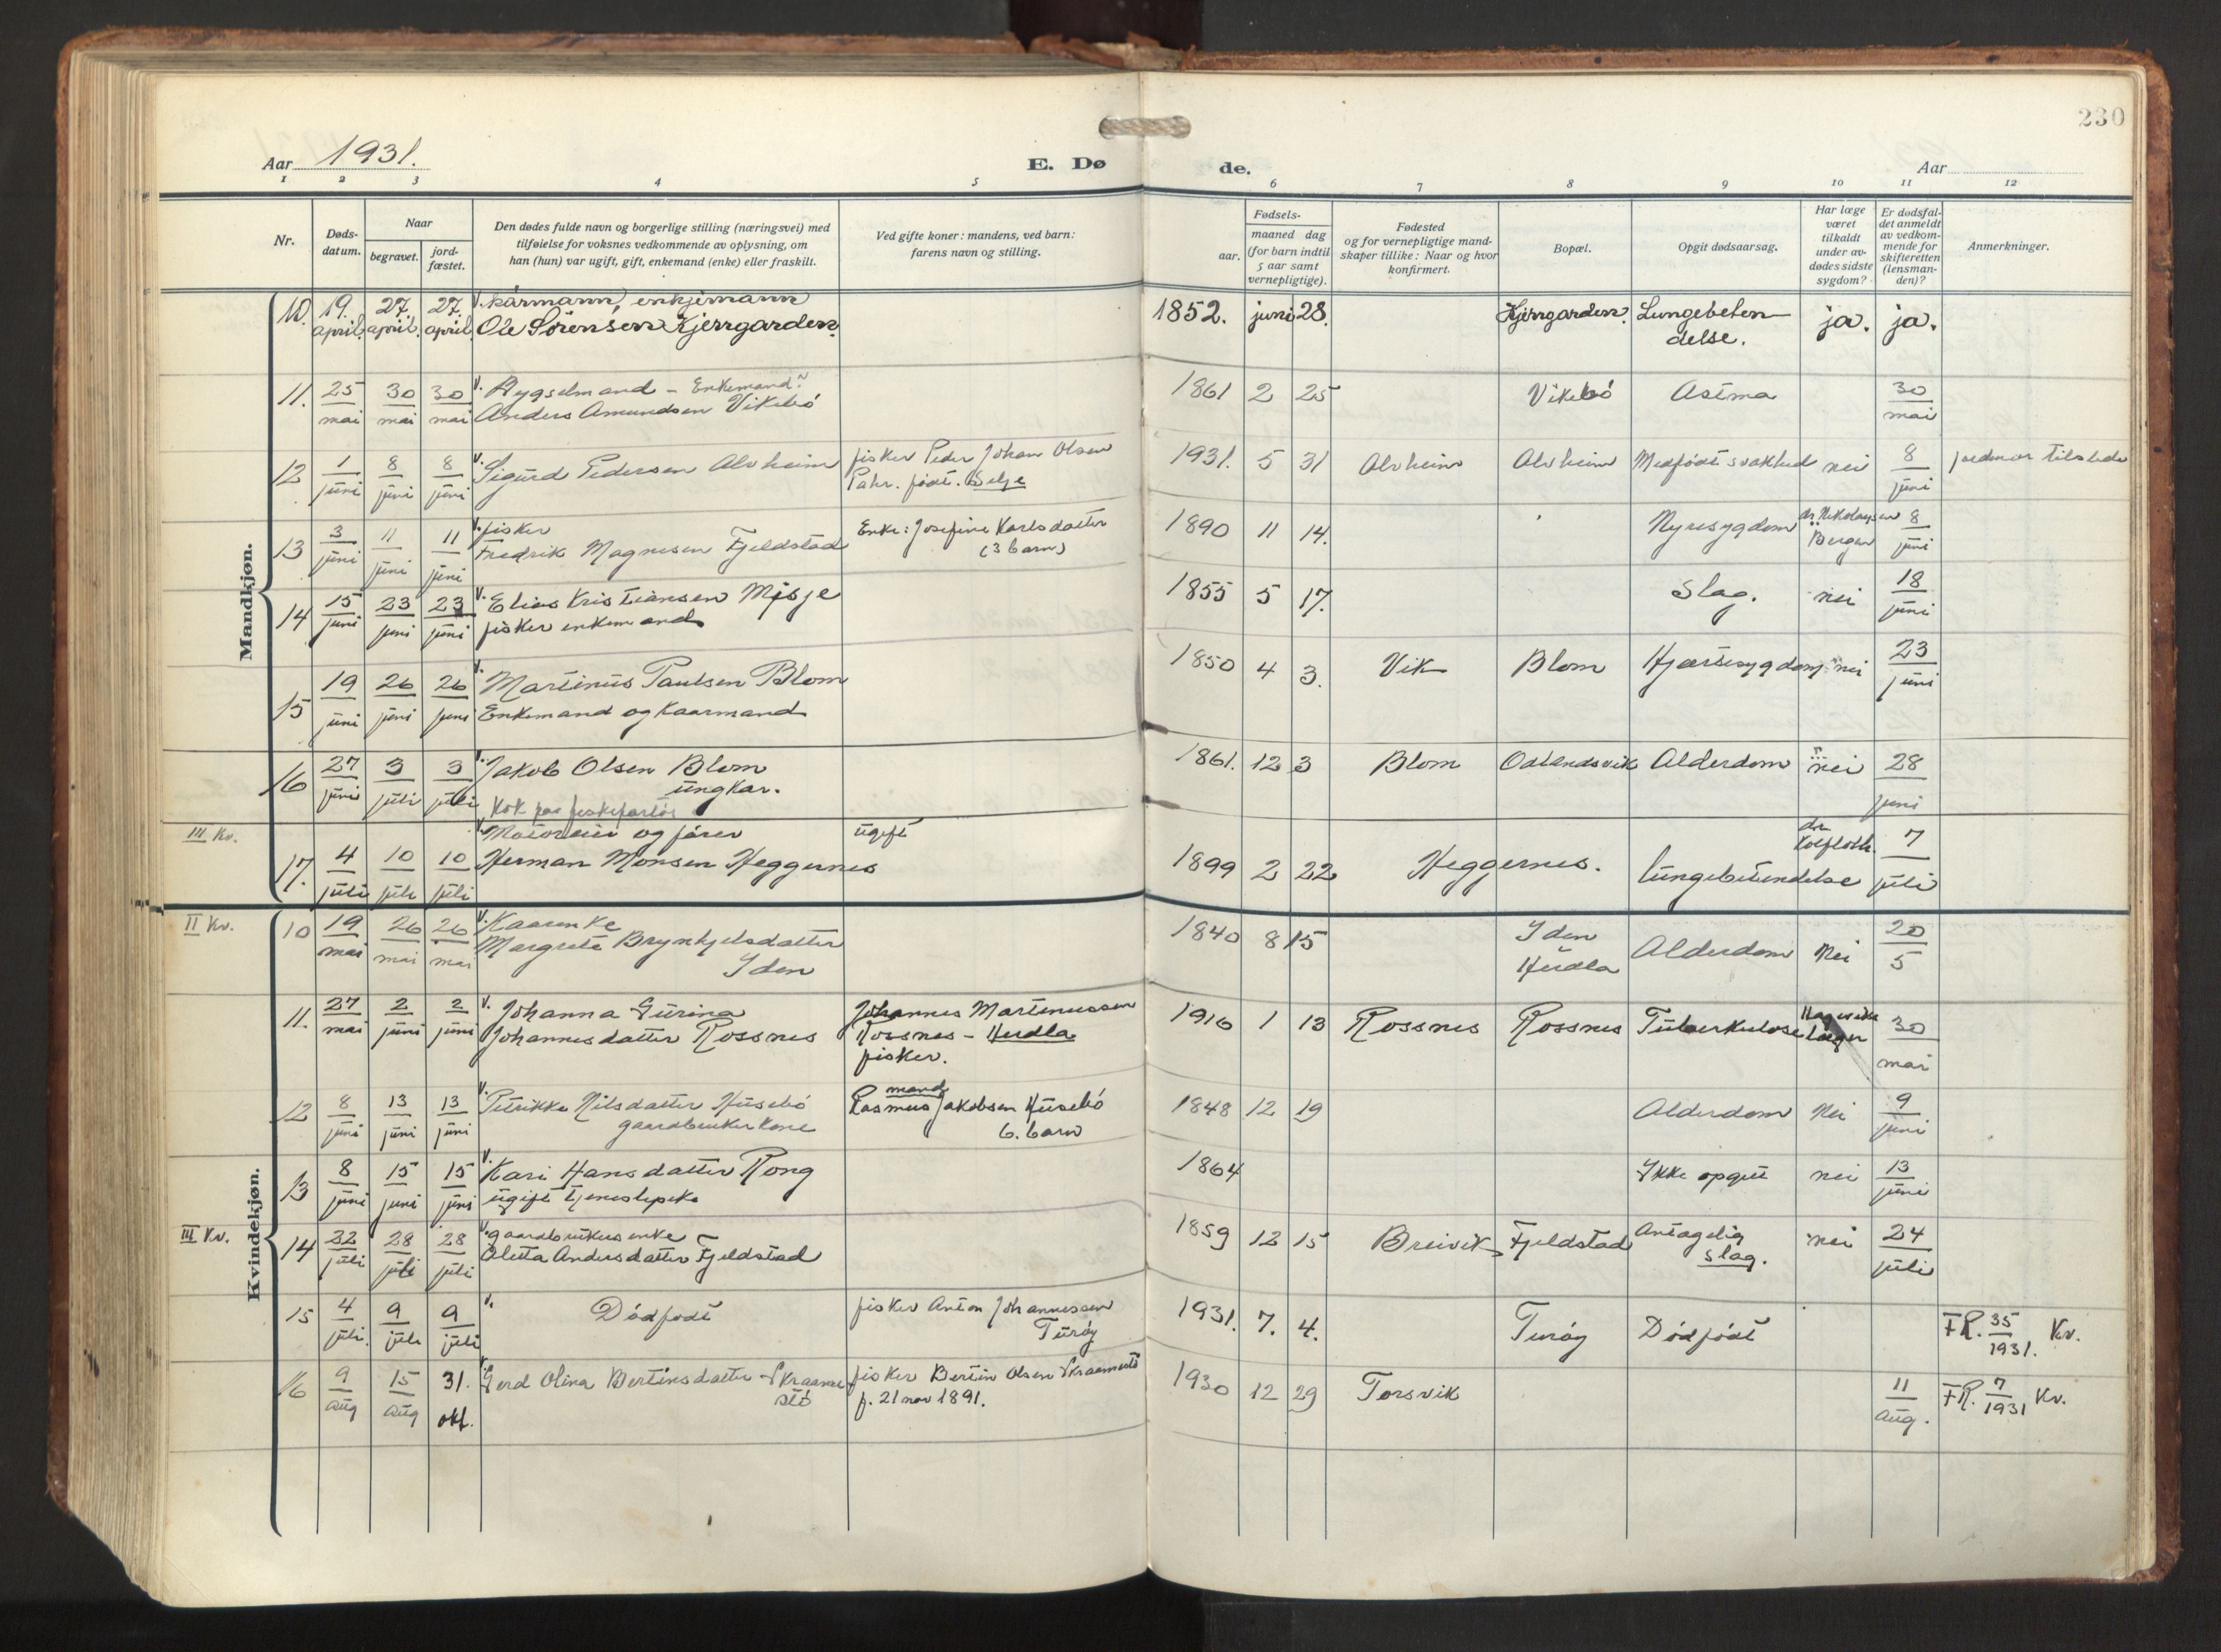 230
Aar 1931. E. Dø de. Aar
1 2 3 4 5 6 7 8 9 10 11 12
Nr.
Døds-
datum.
Naar
begravet.
jord-
fæstet.
Den dødes fulde navn og borgerlige stilling (næringsvei) med
tilføielse for voksnes vedkommende av oplysning, om
han (hun) var ugift, gift, enkemand (enke) eller fraskilt.
Ved gifte koner: mandens, ved barn:
farens navn og stilling.
Fødsels-
aar.
maaned dag
(for barn indtil
5 aar samt
vernepligtige).
Fødested
og for vernepligtige mand-
skaper tillike: Naar og hvor
konfirmert.
Bopæl.
Opgit dødsaarsag.
Har læge
været
tilkaldt
under av-
dødes sidste
sygdom?
Er dødsfal-
det anmeldt
av vedkom-
mende for
skifteretten
(lensman-
den)?
Anmerkninger.
Mandkjøn.
10. 19. april. 27. april. 27. april. v. kårmann, enkjemann
Ole Sørensen Kjerrgarden. 1852. juni 28. Kjerrgarden. Lungebeten-
delse. ja. ja.
11. 25 mai 30 mai 30 mai v. - Enkemand
Anders Amundsen Vikebø 1861 2 25 Vikebø Astma 30 mai
12 1 juni 8 juni 8 juni v. Sigurd Pedersen Alvheim fisker Peder Johan Olsen
født. Selje 1931. 5 31 Alvheim Alvheim Medfødt svakhed nei 8 juni jordmor tilstede
13 3 juni 11 juni 11 juni v. fisker
Fredrik Magnesen Fjeldstad Enke: Josefine Karlsdatter
(3 barn) 1890 11 14. Nyresygdom dr. Nikolaysen
Bergen 8 juni
14 15 juni 23 juni 23 juni v. Elias Kristiansen Misje
fisker enkemand 1855 5 17. Slag. nei 18 juni
15 19 juni 26 juni 26 juni v. Martinus Paulsen Blom
Enkemand og Kaarmand 1850 4 3. Vik Blom Hjertesygdom nei 23 juni
16 27 juni 3 juli 3 juli v. Jakob Olsen Blom
ungkar.
Kok paa fiskefartøi 1861. 12 3 Blom Odlandsvik Alderdom nei 28 juni
III Kv.
17. 4 juli 10 juli 10 juli v. Motoreier og fører ugift
Herman Monsen Heggernes 1899 2 22 Heggernes. lungebetendelse dr. 7 juli
Kvindekjøn.
II Kv. 10 19 mai 26 mai 26 mai v. Kaarenke
Margrete Brynhjelsdatter
Yden 1840 8 15 Yden
Herdla Alderdom Nei 20 5
11. 27 mai 2 juni 2 juni v. Johanna Gurina
Johannesdatter Rossnes Johannes Martinussen
Rossnes - Herdla
fisker. 1916 1 13 Rossnes Rossnes Tuberkulose 30 mai
12 8 juni 13 juni 13 juni v. Petrikke Nilsdatter Husebø
gaardbruker kone mand
Rasmus Jakobsen Husebø
6. barn 1848 12 19 Alderdom Nei 9 juni
13 8 juni 15 juni 15 juni v. Kari Hansdatter Rong
ugift tjenestepike 1864 Ikke opgit nei 13 juni
III Kv. 14 22 juli 28 juli 28 juli v. gaardbrukerenke
Oletta Andersdatter Fjeldstad 1859 12 15 Breivik Fjeldstad Antagelig
slag. nei 24 juli
15 4 juli. 9 juli 9 juli v. Dødfødt fisker Anton Johannessen
Turøy 1931. 7. 4. Turøy Dødfødt F.R. 35 1931. Kv.
16 9 aug 15 aug 31. okt. v. Gerd Olina Bertinsdatter Skraame-
stø fisker Bertin Olsen Skraamestø
f. 21 nov 1891. 1930 12 29 Torsvik 11 aug. F.R. 7 1931 Kv.